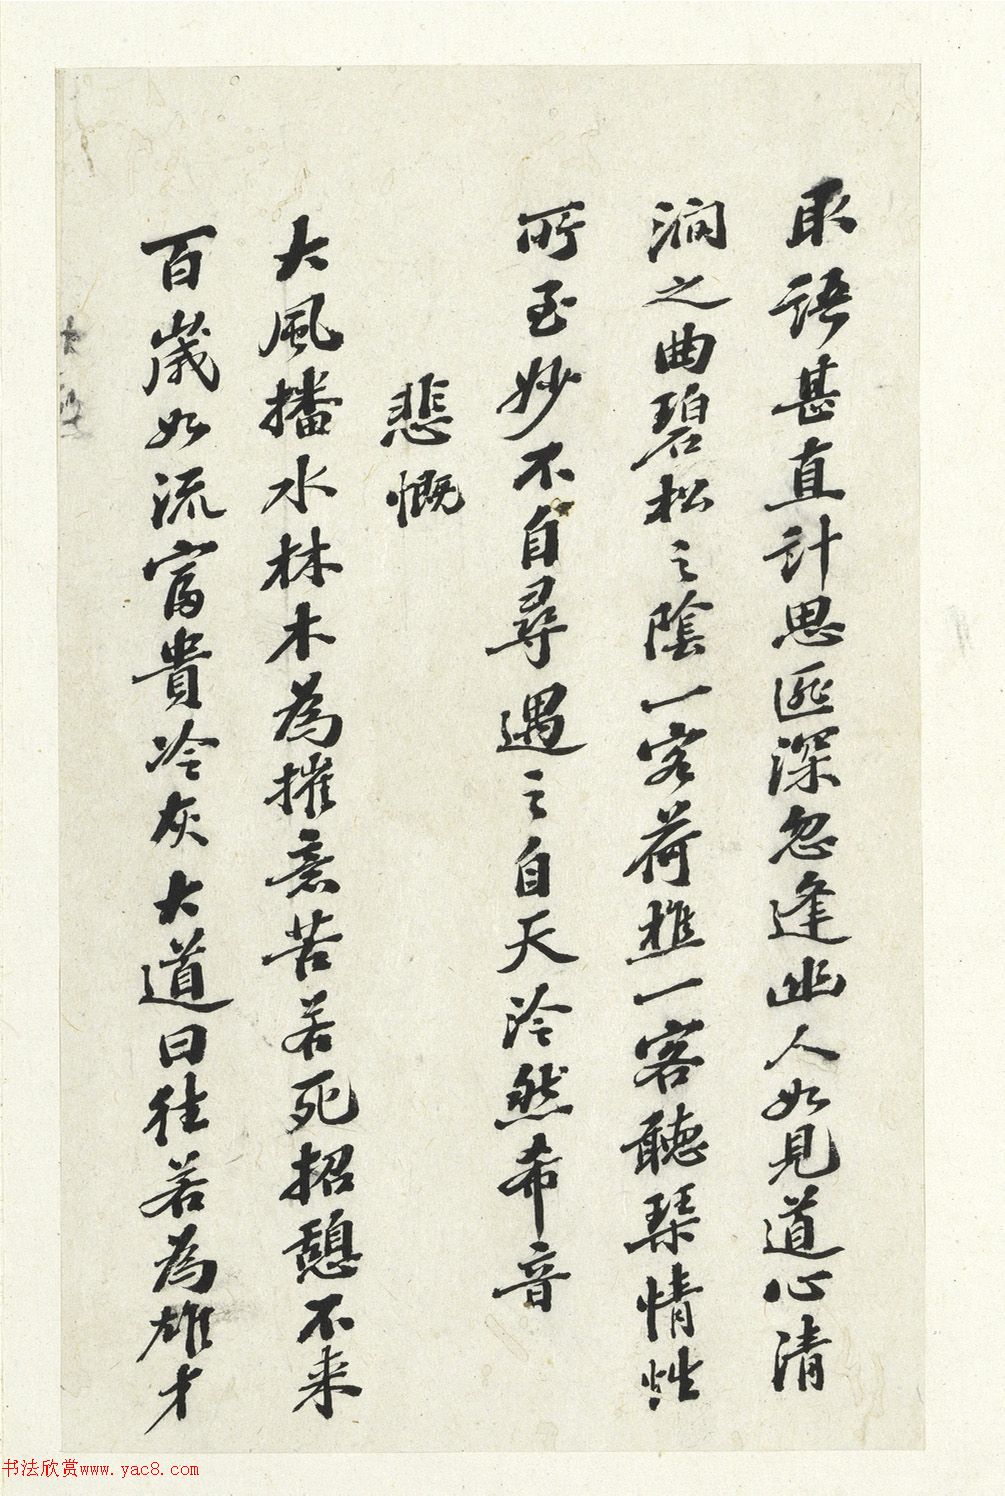 取語甚直計思匪深忽逢幽人如見道心清
澗之曲碧松之陰一客荷樵一客聽琴情性
所至妙不自尋遇之自天泠然希音
悲慨
大風播水林木為摧意苦若死招憩不来
百歲如流富貴冷灰大道日往若為雄才
书法欣赏www.yac8.com